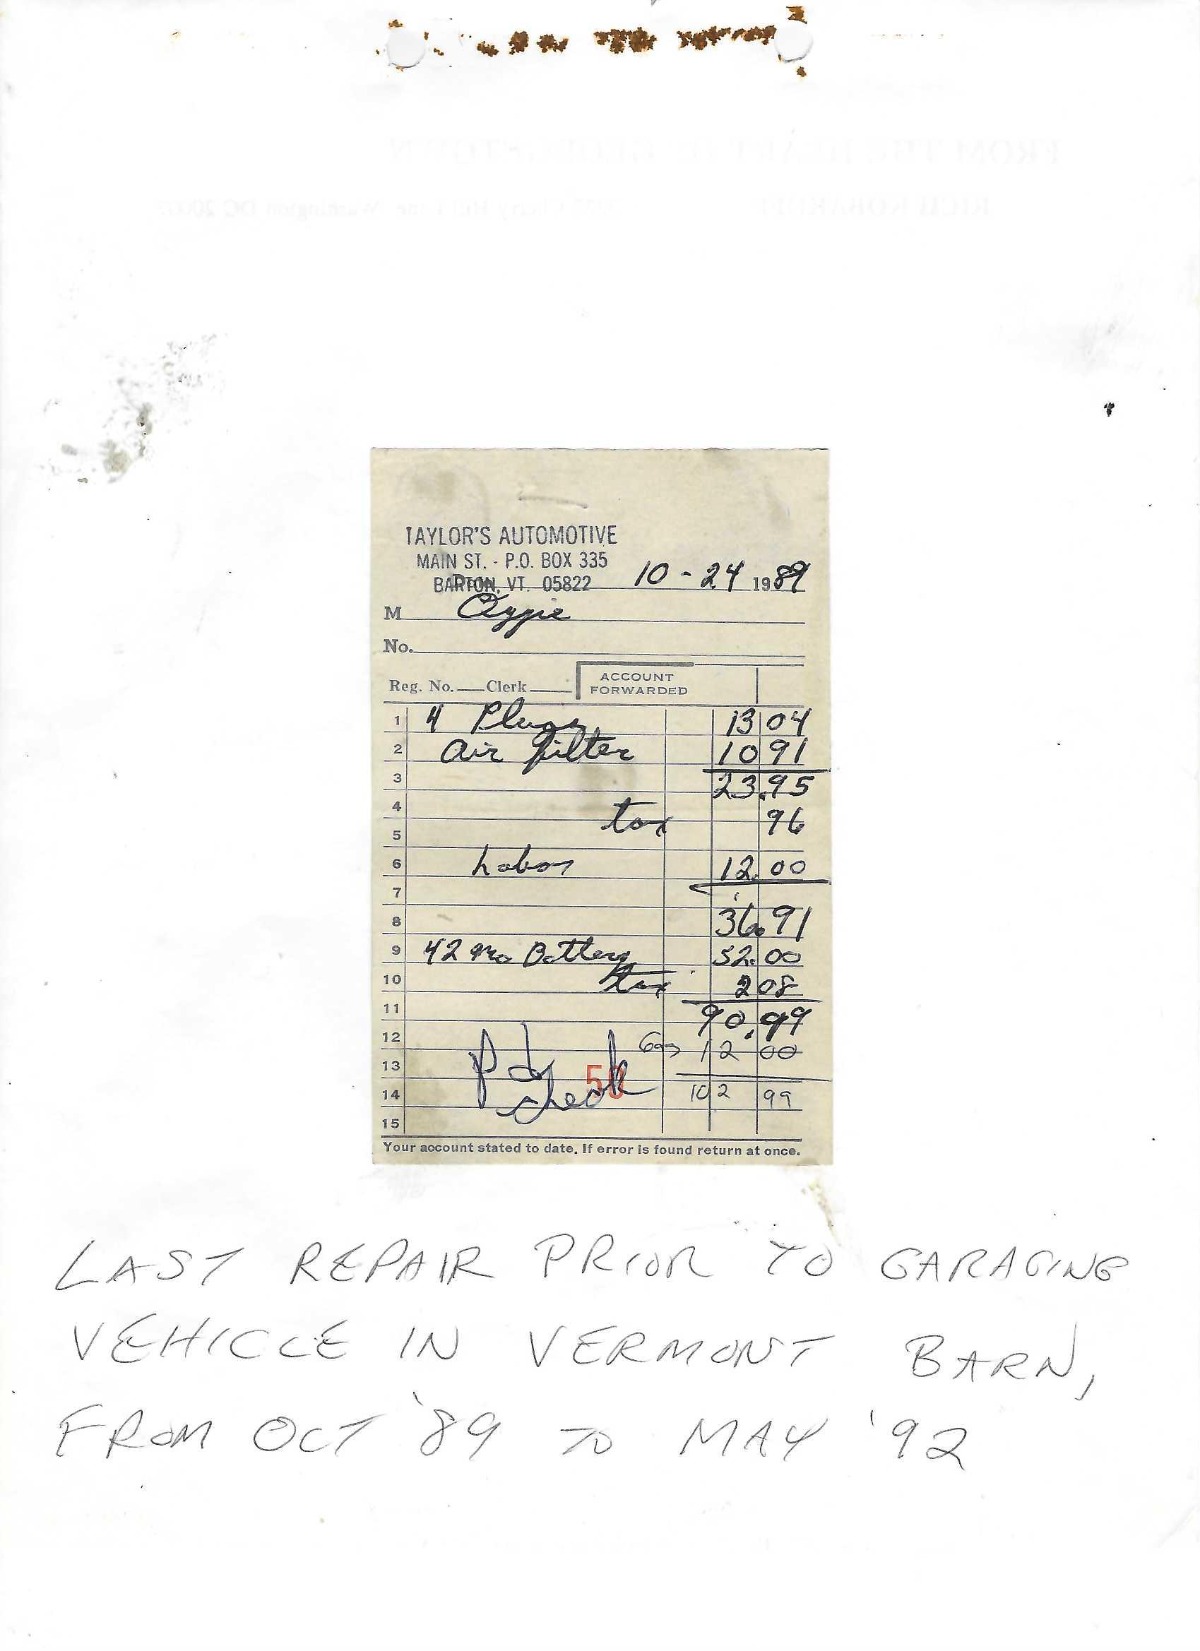 TAYLOR'S AUTOMOTIVE
MAIN ST. - P.O. BOX 335
BARTON, VT. 05822 10-24 1989
M Ozzie
No.
Reg. No. Clerk ACCOUNT FORWARDED
1 4 Plugs 13 04
2 Air filter 10 91
3 23.95
4 tax 96
5
6 Labor 12.00
7
8 36.91
9 42 Mo Battery 52.00
10 tax 2 08
11 90.99
12 Gas 12 00
13 Pd 50
14 check 102 99
15
Your account stated to date. If error is found return at once.
LAST REPAIR PRIOR TO GARAGING
VEHICLE IN VERMONT BARN,
FROM OCT '89 TO MAY '92